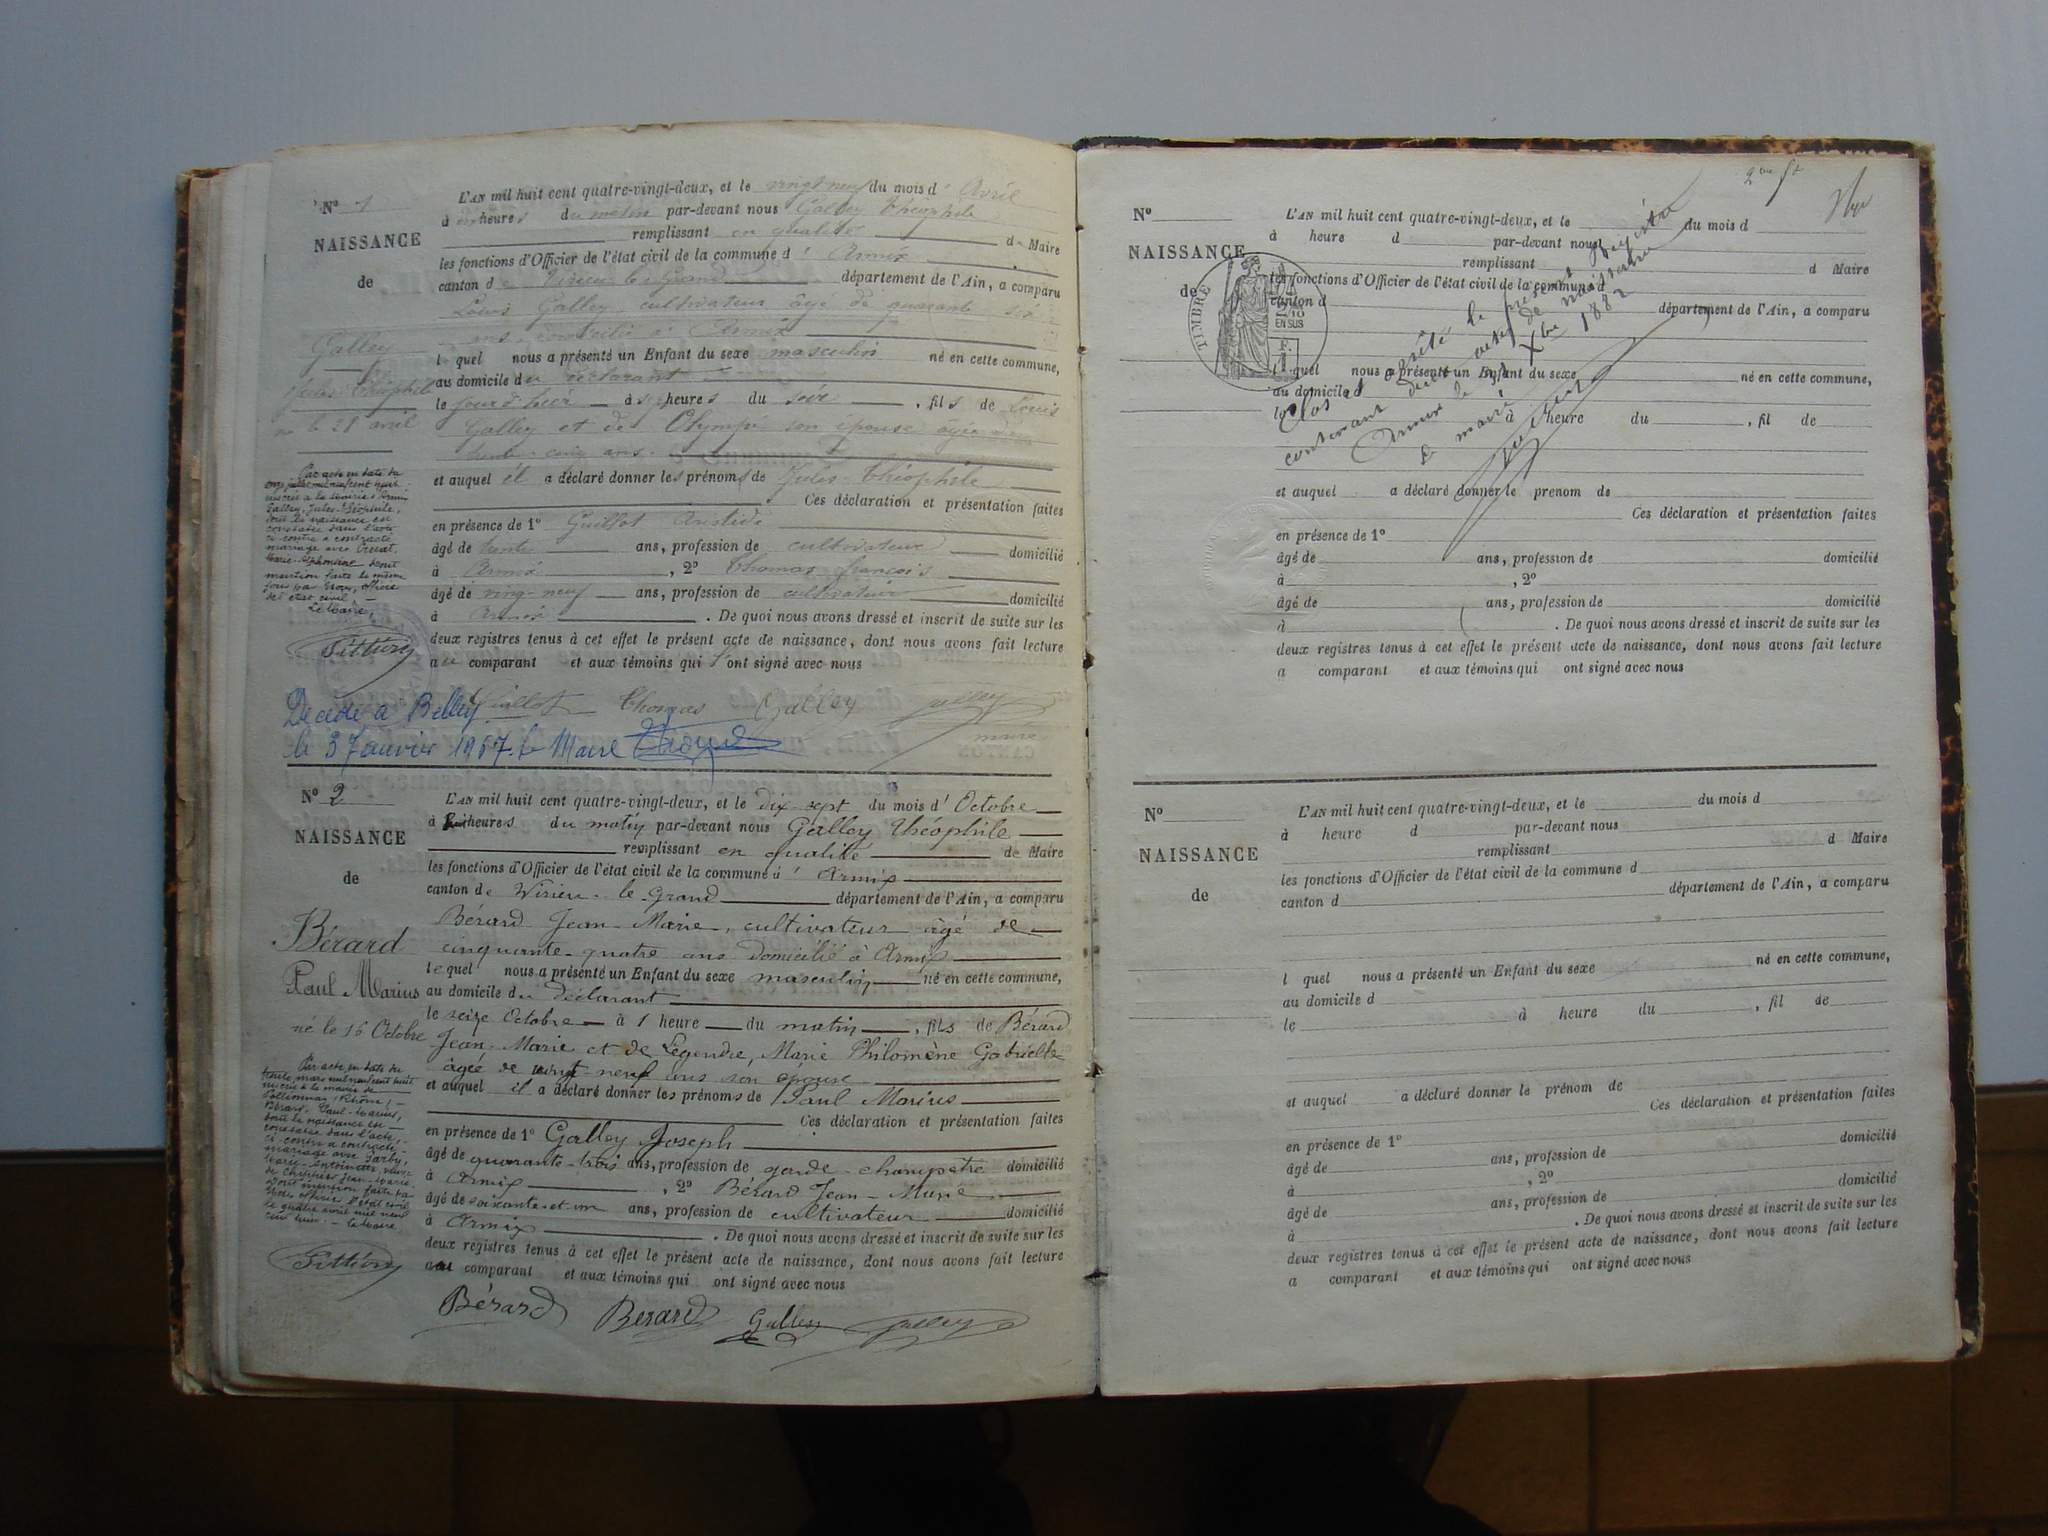 N° 1
NAISSANCE
de
Galley
Jules Théophile
né le 28 avril
L'AN mil huit cent quatre-vingt-deux, et le vingt neuf du mois d' Avril
à heures du matin par-devant nous Galley Théophile
remplissant en qualité de Maire
les fonctions d'Officier de l'état civil de la commune d' Armix
canton de Virieu le Grand département de l'Ain, a comparu
Louis Galley, cultivateur âgé de quarante six
ans, domicilié à Armix
lequel nous a présenté un Enfant du sexe masculin né en cette commune,
au domicile du déclarant
le jour d'hier à heures du soir, fils de Louis
Galley et de Olympe son épouse agée de
trente-cinq ans.
et auquel il a déclaré donner les prénoms de Jules Théophile
Ces déclaration et présentation faites
en présence de 1° Guillot Aristide
âgé de trente ans, profession de cultivateur domicilié
à Armix, 2° Thomas françois
âgé de vingt-neuf ans, profession de cultivateur domicilié
à Armix. De quoi nous avons dressé et inscrit de suite sur les
deux registres tenus à cet effet le présent acte de naissance, dont nous avons fait lecture
au comparant et aux témoins qui l'ont signé avec nous
Guillot Thomas Galley Galley
maire
Par acte en date du
mil neuf cent huit
inscrit à la mairie d'Armix
Galley, Jules-Théophile,
dont la naissance est
constatée dans l'acte
ci-contre a contracté
mariage avec
Marie-Alphonsine dont
mention faite le même
jour par Nous, officier
de l'état civil
Le Maire,
Décédé à Belley
le 3 Janvier 1967. Le Maire
N° 2
NAISSANCE
de
Bérard
Paul Marius
né le 16 Octobre
L'AN mil huit cent quatre-vingt-deux, et le dix-sept du mois d' Octobre
à huit heures du matin par-devant nous Galley Théophile
remplissant en qualité de Maire
les fonctions d'Officier de l'état civil de la commune d' Armix
canton de Virieu-le-Grand département de l'Ain, a comparu
Bérard Jean-Marie, cultivateur âgé de
cinquante-quatre ans domicilié à Armix
lequel nous a présenté un Enfant du sexe masculin né en cette commune,
au domicile du déclarant
le seize Octobre à 1 heure du matin, fils de Bérard
Jean-Marie et de Legendre, Marie Philomène Gabrielle
âgée de vingt-neuf ans son épouse
et auquel il a déclaré donner les prénoms de Paul Marius
Ces déclaration et présentation faites
en présence de 1° Galley Joseph
âgé de quarante-trois ans, profession de garde-champêtre domicilié
à Armix, 2° Bérard Jean-Marie
âgé de soixante-et-un ans, profession de cultivateur domicilié
à Armix. De quoi nous avons dressé et inscrit de suite sur les
deux registres tenus à cet effet le présent acte de naissance, dont nous avons fait lecture
au comparant et aux témoins qui ont signé avec nous
Bérard Berard Galley Galley
Par acte, en date du
trente mars mil neuf cent huit
inscrit à la mairie de
(Rhône)
Bérard, Paul-Marius,
dont la naissance est
constatée dans l'acte,
ci-contre a contracté
mariage avec
Marie-Antoinette, veuve
de Jean-Marie.
Dont mention faite par
Nous officier d'état civil
le quatre avril mil neuf
cent huit. Le Maire
2me ft
N°
NAISSANCE
de
TIMBRE
2/10
EN SUS
F.
L'AN mil huit cent quatre-vingt-deux, et le du mois d
à heure d par-devant nous
remplissant d Maire
les fonctions d'Officier de l'état civil de la commune d
canton d département de l'Ain, a comparu
l quel nous a présenté un Enfant du sexe né en cette commune,
au domicile d
le à heure du , fil de
et auquel a déclaré donner le prenom de
Ces déclaration et présentation faites
en présence de 1°
âgé de ans, profession de domicilié
à , 2°
âgé de ans, profession de domicilié
à . De quoi nous avons dressé et inscrit de suite sur les
deux registres tenus à cet effet le présent acte de naissance, dont nous avons fait lecture
a comparant et aux témoins qui ont signé avec nous
Clos et arrêté le présent registre
contenant deux actes de naissance
Armix le Xbre 1882
Le maire
N°
NAISSANCE
de
L'AN mil huit cent quatre-vingt-deux, et le du mois d
à heure d par-devant nous
remplissant d Maire
les fonctions d'Officier de l'état civil de la commune d
canton d département de l'Ain, a comparu
l quel nous a présenté un Enfant du sexe né en cette commune,
au domicile d
le à heure du , fil de
et auquel a déclaré donner le prénom de
Ces déclaration et présentation faites
en présence de 1°
âgé de ans, profession de domicilié
à , 2°
âgé de ans, profession de domicilié
à . De quoi nous avons dressé et inscrit de suite sur les
deux registres tenus à cet effet le présent acte de naissance, dont nous avons fait lecture
a comparant et aux témoins qui ont signé avec nous